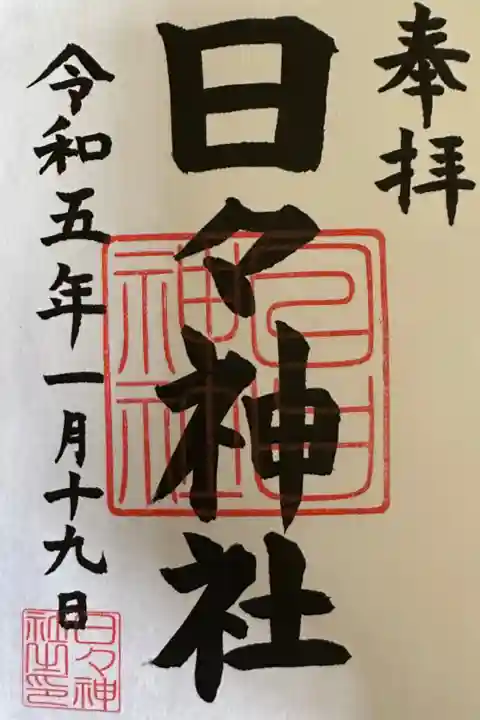 奉拝
日々神社
令和五年一月十九日
日日神社
日々神社之印